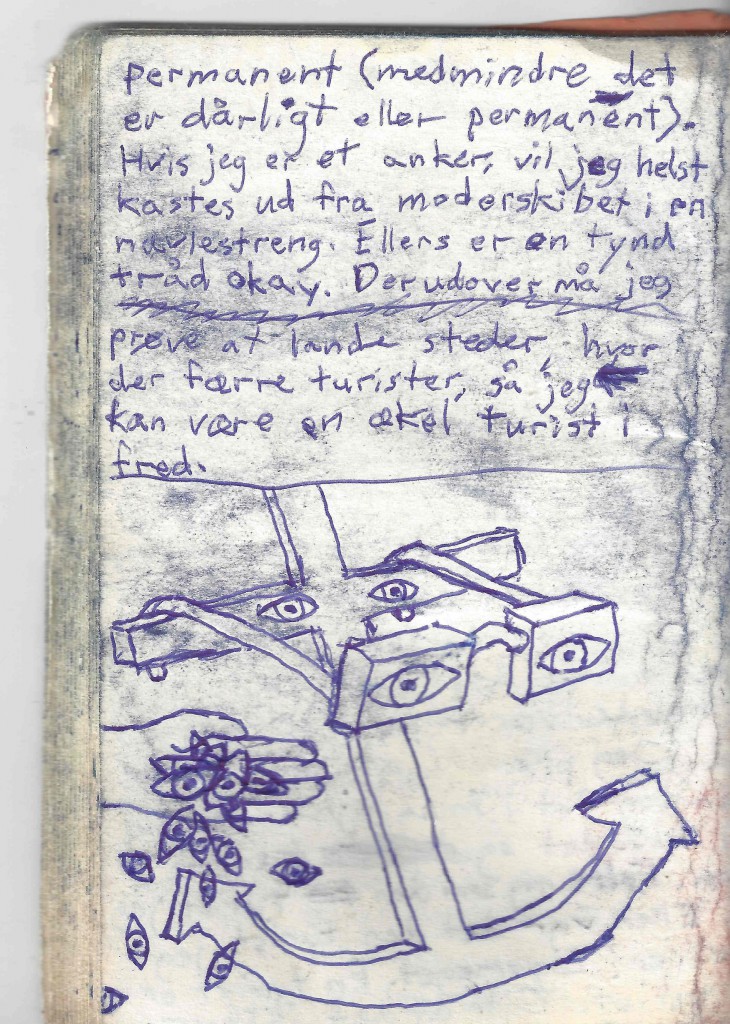 permanent (medmindre det
er dårligt eller permanent).
Hvis jeg er et anker, vil jeg helst
kastes ud fra moderskibet i en
navlestreng. Ellers er en tynd
tråd okay. Derudover må jeg
prøve at lande steder, hvor
der færre turister, så jeg
kan være en ækel turist i
fred.